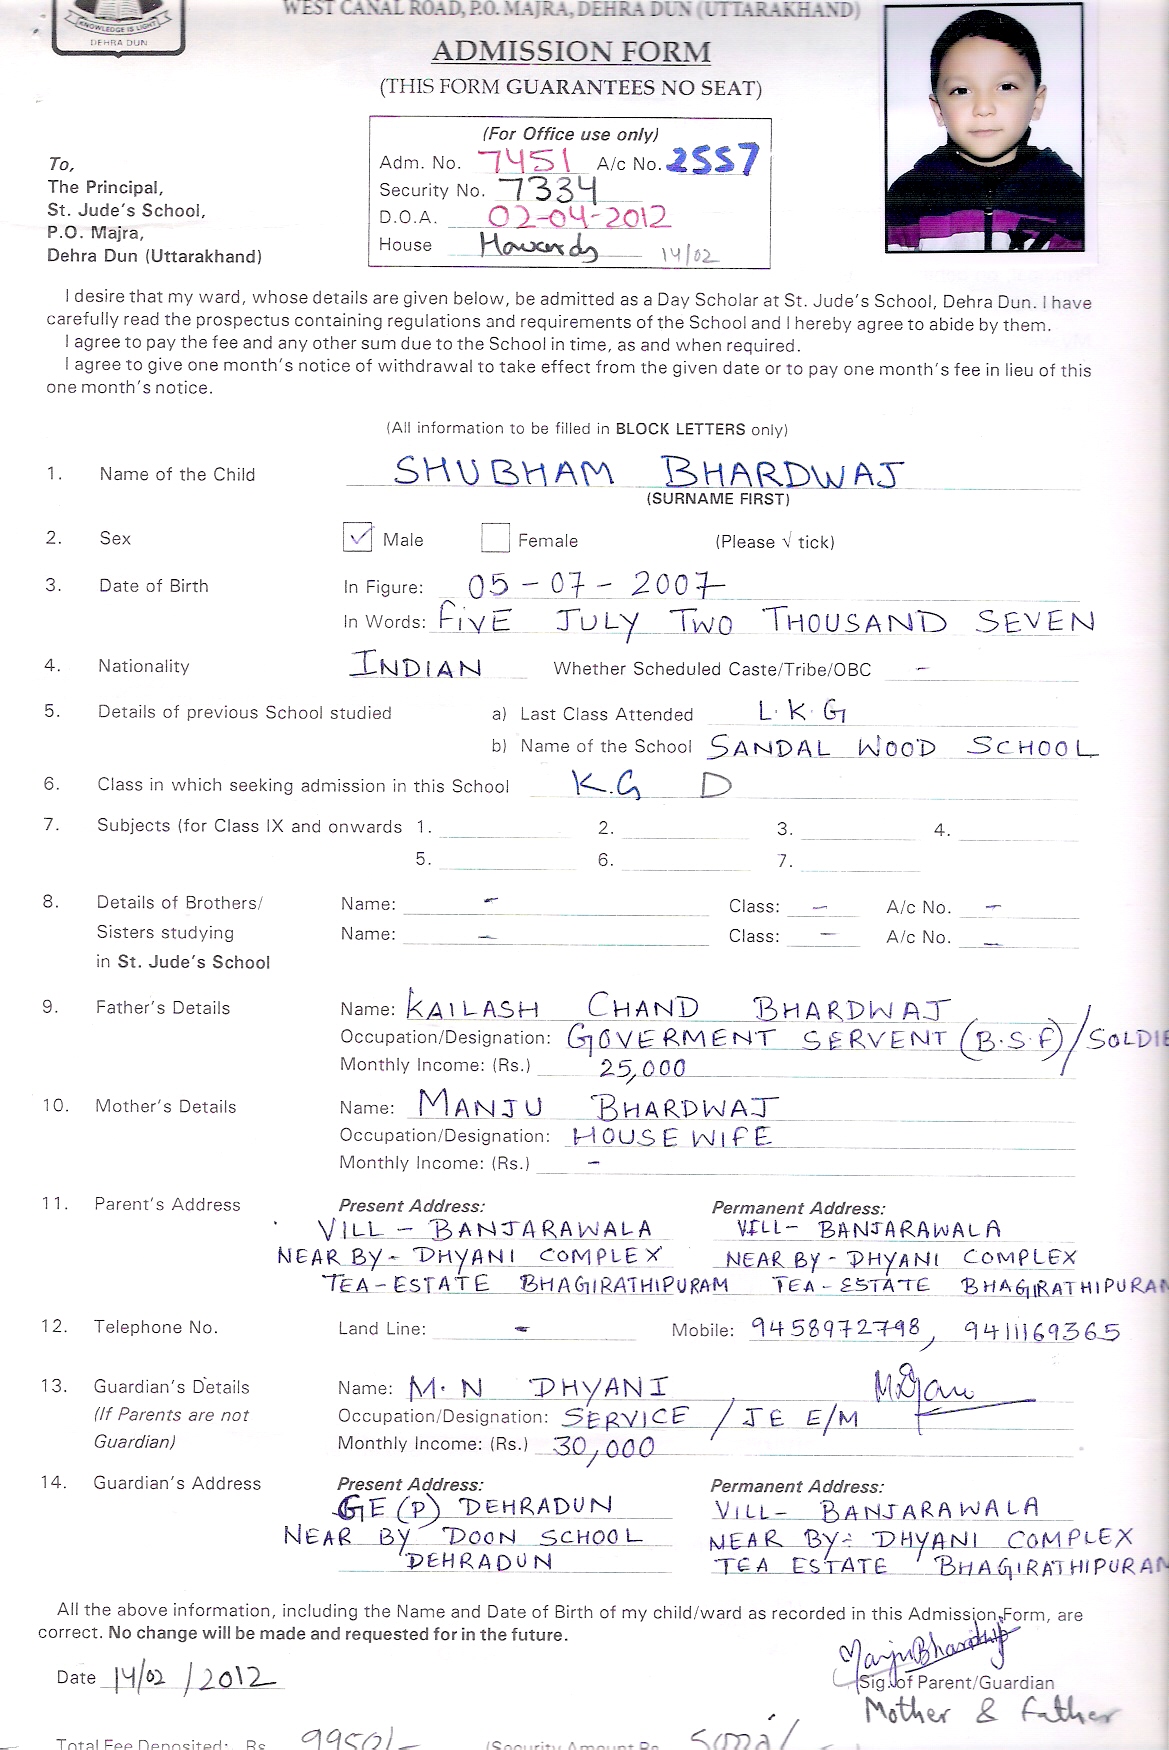 WEST CANAL ROAD, P.O. MAJRA, DEHRA DUN (UTTARAKHAND)
KNOWLEDGE IS LIGHT
DEHRA DUN
ADMISSION FORM
(THIS FORM GUARANTEES NO SEAT)
(For Office use only)
Adm. No. 7451 A/c No. 2557
Security No. 7334
D.O.A. 02-04-2012
House Howards 14/02
To,
The Principal,
St. Jude's School,
P.O. Majra,
Dehra Dun (Uttarakhand)
I desire that my ward, whose details are given below, be admitted as a Day Scholar at St. Jude's School, Dehra Dun. I have
carefully read the prospectus containing regulations and requirements of the School and I hereby agree to abide by them.
I agree to pay the fee and any other sum due to the School in time, as and when required.
I agree to give one month's notice of withdrawal to take effect from the given date or to pay one month's fee in lieu of this
one month's notice.
(All information to be filled in BLOCK LETTERS only)
1. Name of the Child SHUBHAM BHARDWAJ
(SURNAME FIRST)
2. Sex Male Female (Please √ tick)
3. Date of Birth In Figure: 05-07-2007
In Words: FIVE JULY TWO THOUSAND SEVEN
4. Nationality INDIAN Whether Scheduled Caste/Tribe/OBC -
5. Details of previous School studied a) Last Class Attended L.K.G
b) Name of the School SANDAL WOOD SCHOOL
6. Class in which seeking admission in this School K.G D
7. Subjects (for Class IX and onwards 1. 2. 3. 4.
5. 6. 7.
8. Details of Brothers/ Name: - Class: - A/c No. -
Sisters studying Name: - Class: - A/c No. -
in St. Jude's School
9. Father's Details Name: KAILASH CHAND BHARDWAJ
Occupation/Designation: GOVERMENT SERVENT (B.S.F)/SOLDIE
Monthly Income: (Rs.) 25,000
10. Mother's Details Name: MANJU BHARDWAJ
Occupation/Designation: HOUSE WIFE
Monthly Income: (Rs.) -
11. Parent's Address Present Address: Permanent Address:
VILL - BANJARAWALA VILL- BANJARAWALA
NEAR BY - DHYANI COMPLEX NEAR BY - DHYANI COMPLEX
TEA-ESTATE BHAGIRATHIPURAM TEA-ESTATE BHAGIRATHIPURAM
12. Telephone No. Land Line: - Mobile: 9458972798, 9411169365
13. Guardian's Details Name: M.N DHYANI
(If Parents are not Occupation/Designation: SERVICE / JE E/M
Guardian) Monthly Income: (Rs.) 30,000
14. Guardian's Address Present Address: Permanent Address:
GE (P) DEHRADUN VILL- BANJARAWALA
NEAR BY DOON SCHOOL NEAR BY- DHYANI COMPLEX
DEHRADUN TEA ESTATE BHAGIRATHIPURAM
All the above information, including the Name and Date of Birth of my child/ward as recorded in this Admission Form, are
correct. No change will be made and requested for in the future.
Manju Bhardwaj
Date 14/02/2012 (Sig. of Parent/Guardian
Mother & Father
Total Fee Deposited: Rs 9950/- (Security Amount Rs.